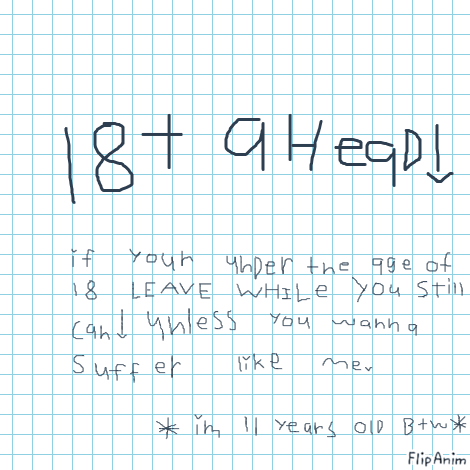 18+ aHeaD↓
if your unDer the age of
18 LEAVE WHILe you still
can↓ unless you wanna
suffer like me.
* im 11 years olD Btw*
FlipAnim